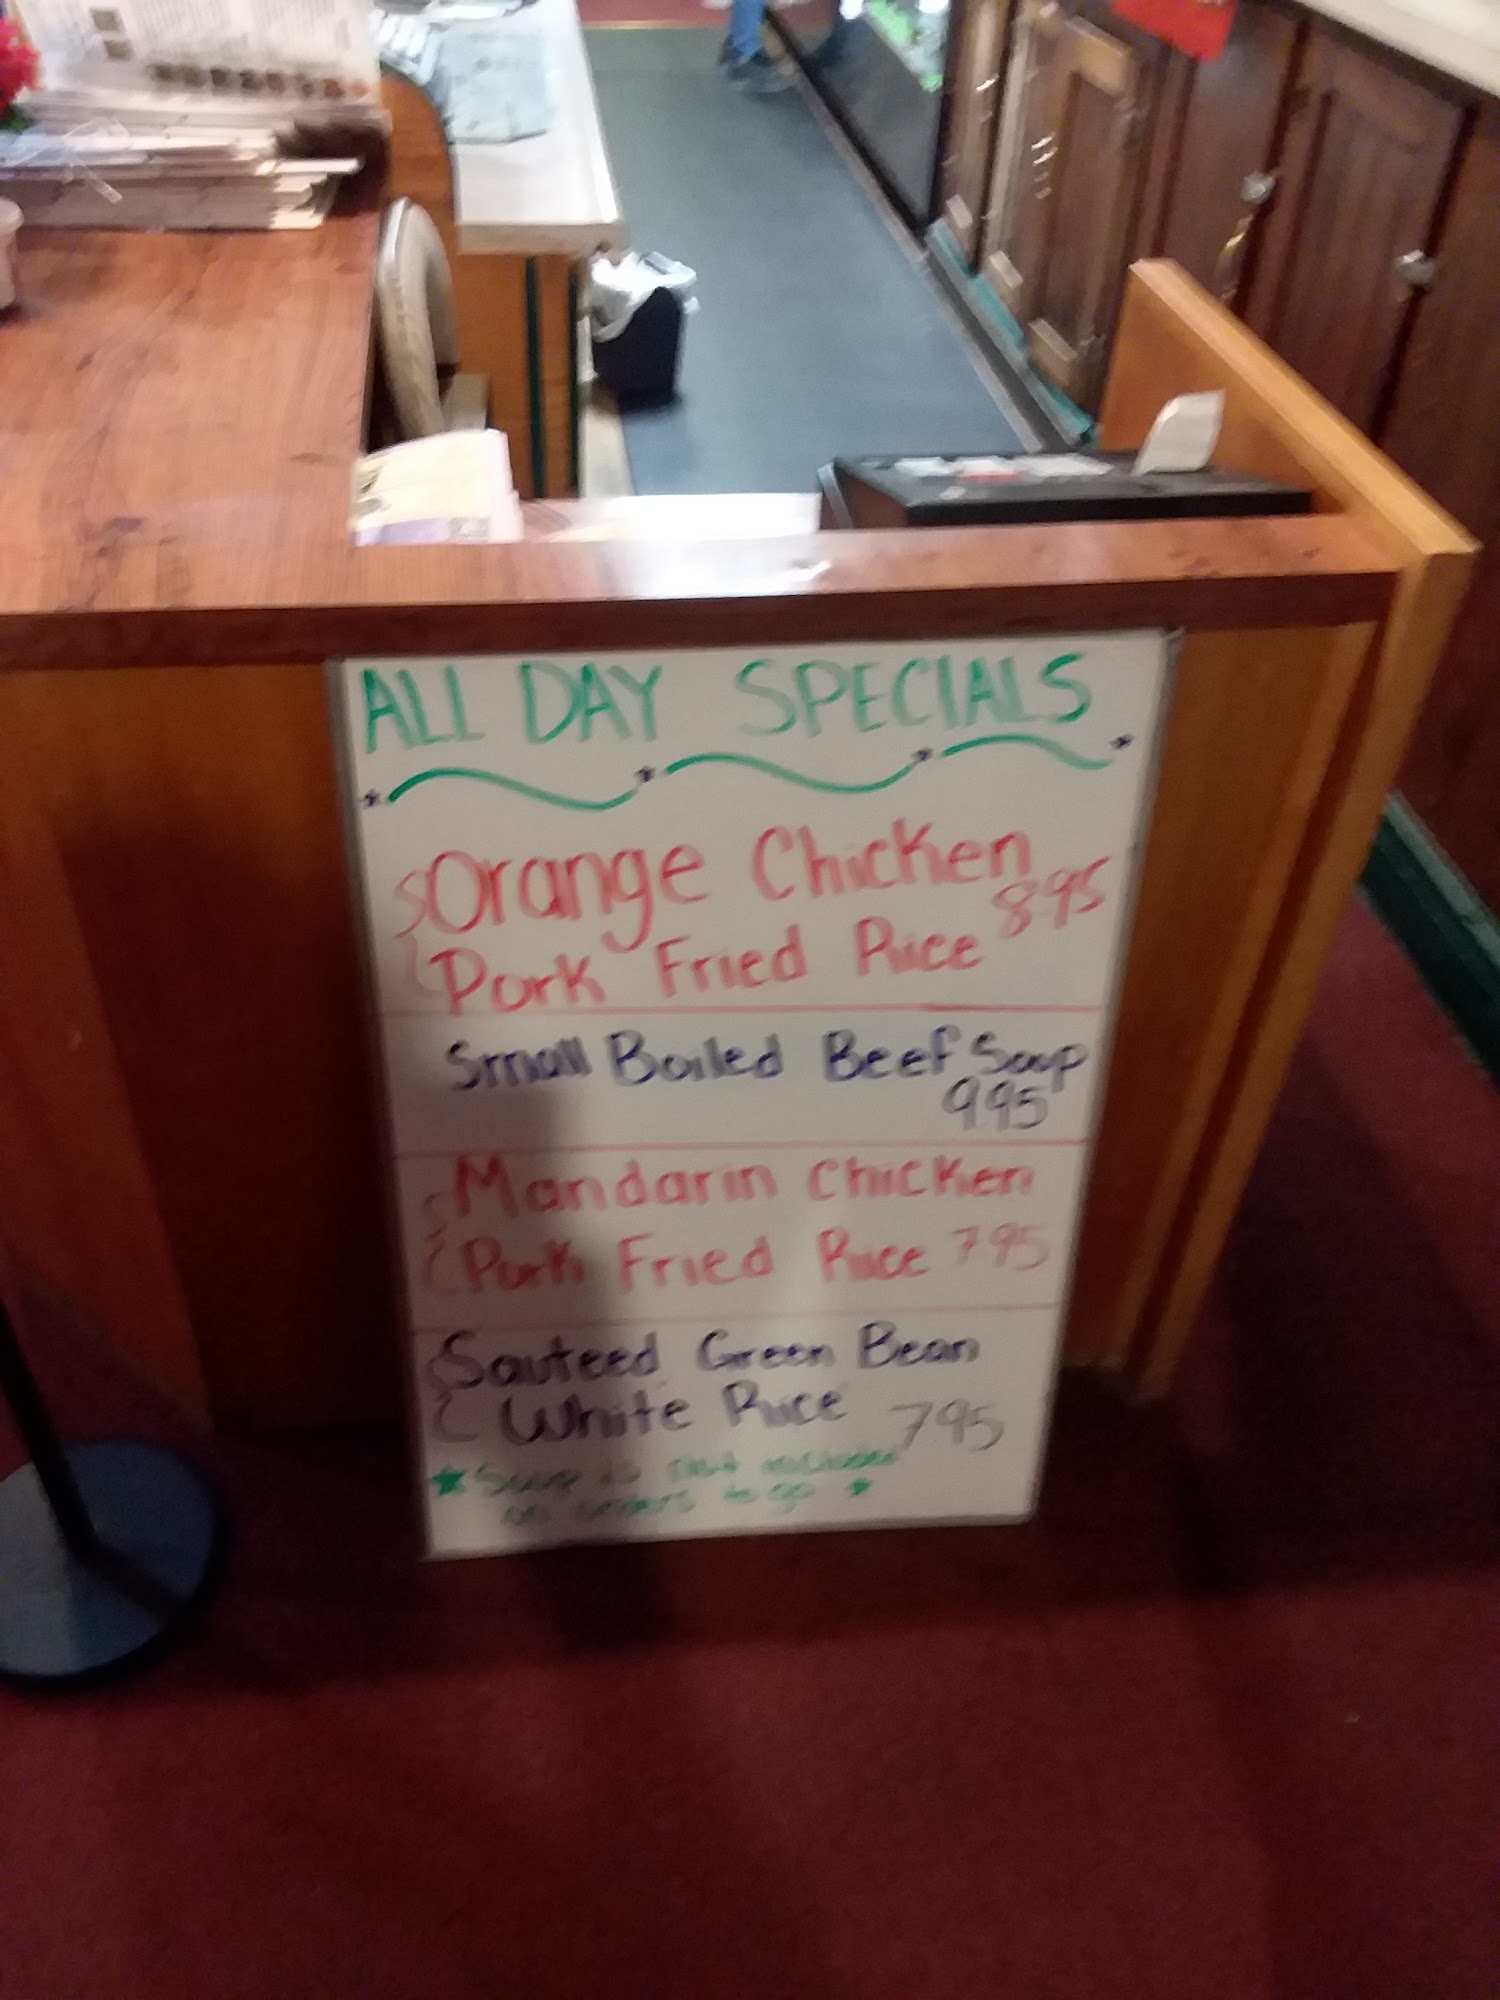 ALL DAY SPECIALS
Orange Chicken
8.95
Pork Fried Rice
Small Boiled Beef Soup
9.95
Mandarin Chicken
Pork Fried Rice 7.95
Sauteed Green Bean
White Rice 7.95
Soup is not included
on orders to go